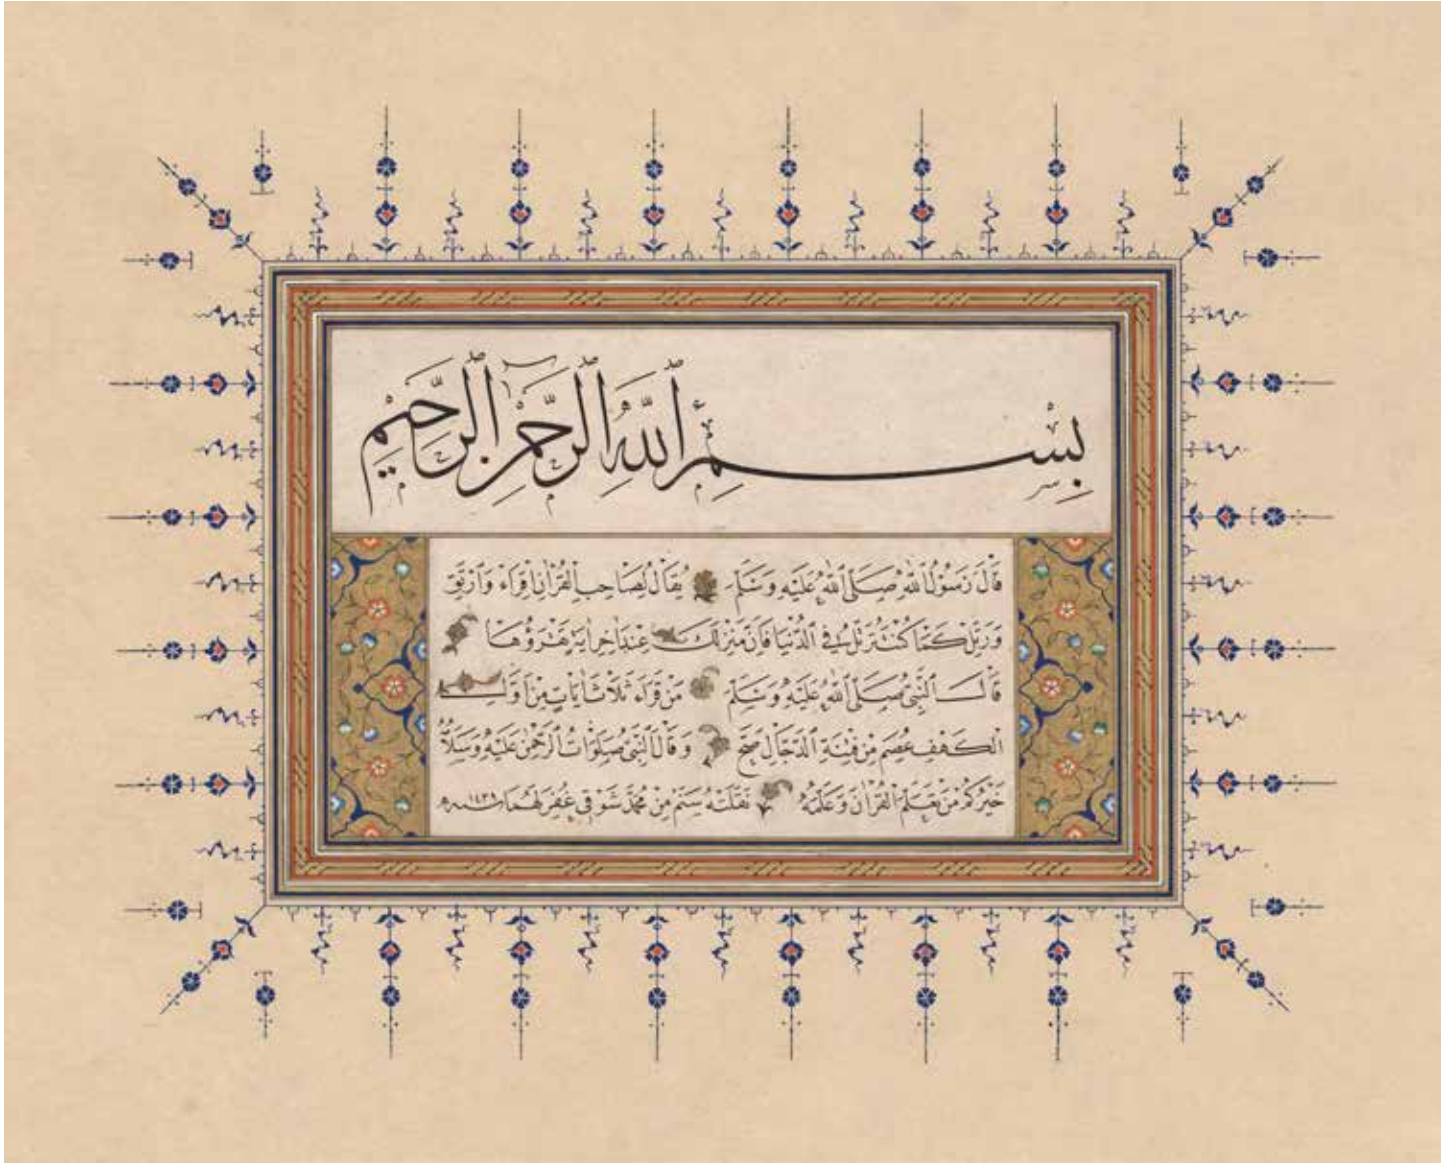 بِسْمِ ٱللهِ ٱلرَّحْمٰنِ ٱلرَّحِيمِ
قَالَ رَسُولُ اللهِ صَلَّى اللهُ عَلَيْهِ وَسَلَّمَ يُقَالُ لِصَاحِبِ الْقُرْاٰنِ اِقْرَاْ وَارْتَقِ
وَرَتِّلْ كَمَا كُنْتَ تُرَتِّلُ فِي الدُّنْيَا فَاِنَّ مَنْزِلَكَ عِنْدَ اٰخِرِ اٰيَةٍ تَقْرَؤُهَا
قَالَ النَّبِيُّ صَلَّى اللهُ عَلَيْهِ وَسَلَّمَ مَنْ قَرَاَ ثَلَاثَ اٰيَاتٍ مِنْ اَوَّلِ
الْكَهْفِ عُصِمَ مِنْ فِتْنَةِ الدَّجَّالِ صح وَقَالَ النَّبِيُّ صَلَوَاتُ الرَّحْمٰنِ عَلَيْهِ وَسَلَامُهُ
خَيْرُكُمْ مَنْ تَعَلَّمَ الْقُرْاٰنَ وَعَلَّمَهُ نَقَلَتْهُ سنم مِنْ مُحَمَّد شَوْقِي غُفِرَ لَهُمَا